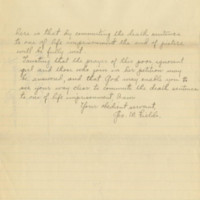 Pere is that by commuting the death sentence
to one of life imprisonment the end of justice
will be fully met.
Trusting that the prayer of this poor ignorant
girl and those who join in her petition may
be answered, and that God may enable you to
see your way clear to commute the death sentence
to one of life imprisonment, I am
Your obedient servant,
Geo. W. Fields.